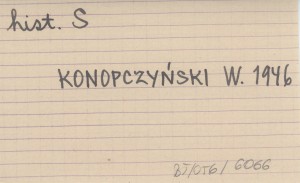 hist. S
KONOPCZYŃSKI W. 1946
BJ/OTG/6066